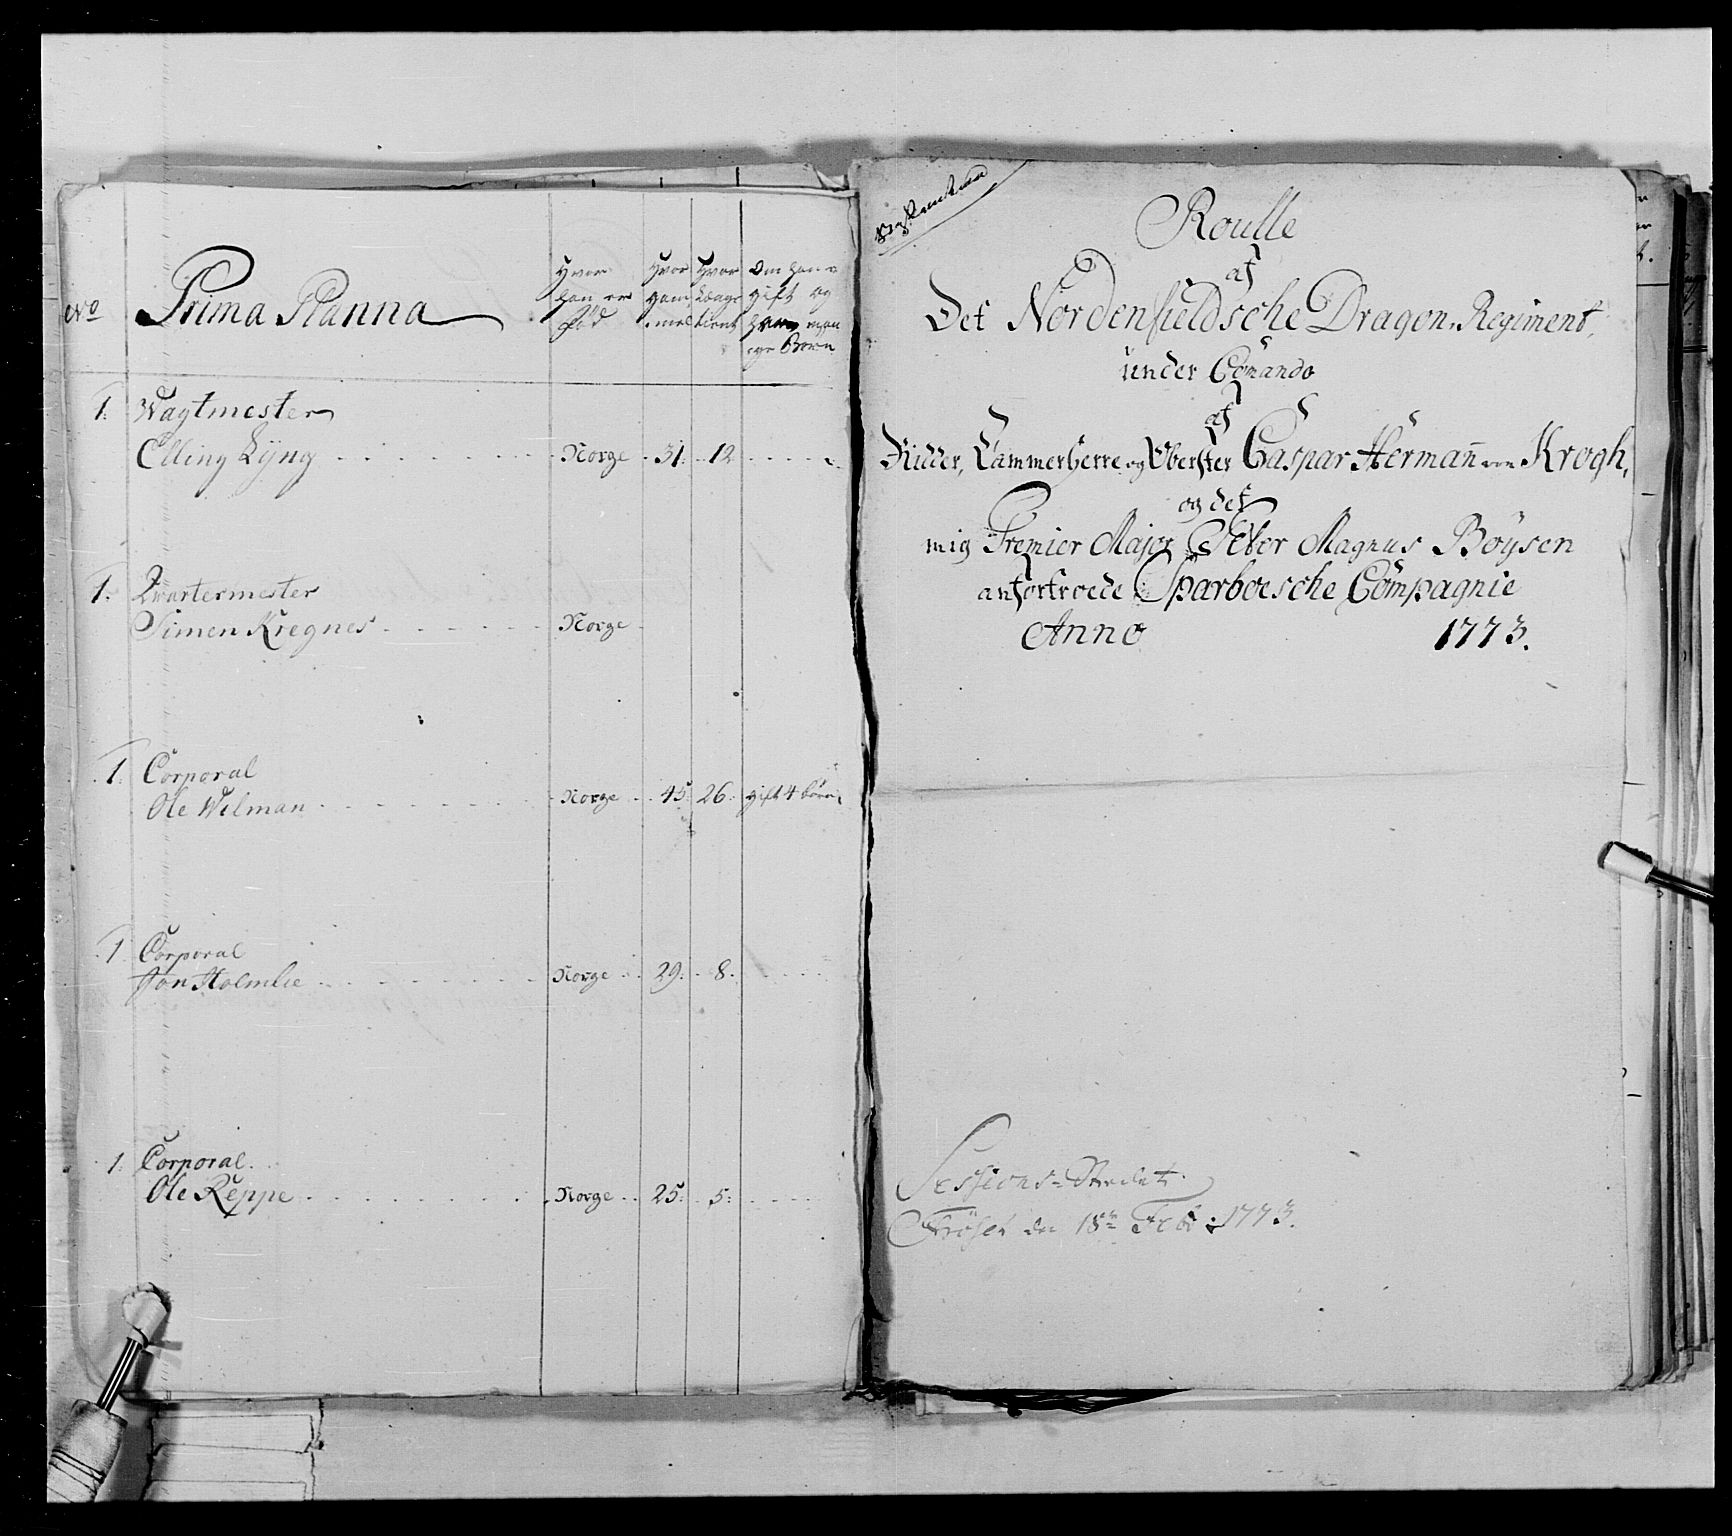 No
Prima Planna
Hvor
han er
fød
Hvor
gam,
mel
Hvor
Længe
tient
Om han er
gift og
hvor man
ege Børn
1. Wagtmester
Elling Lÿng Norge 31. 12
1. Qvartermester
Simen Kregnes Norge
1. Corporal
Ole Wilman Norge 45. 26. gift 4 børn,
1 Corporal
Jon Holmlie Norge 29. 8.
1. Corporal.
Ole Reppe Norge 25. 5.
Roulle
af
Det Nordenfieldsche Dragon-Regiment,
under Com̄ando
af
Ridder, Cammerherre og Oberster Caspar Herman̄ von Krogh,
og det
mig Premier Major Peter Magnus Böÿsen
anfortroede Sparboesche Compagnie
Anno 1773.
Sessions-Stedet
Frösen den 18de Feb: 1773.